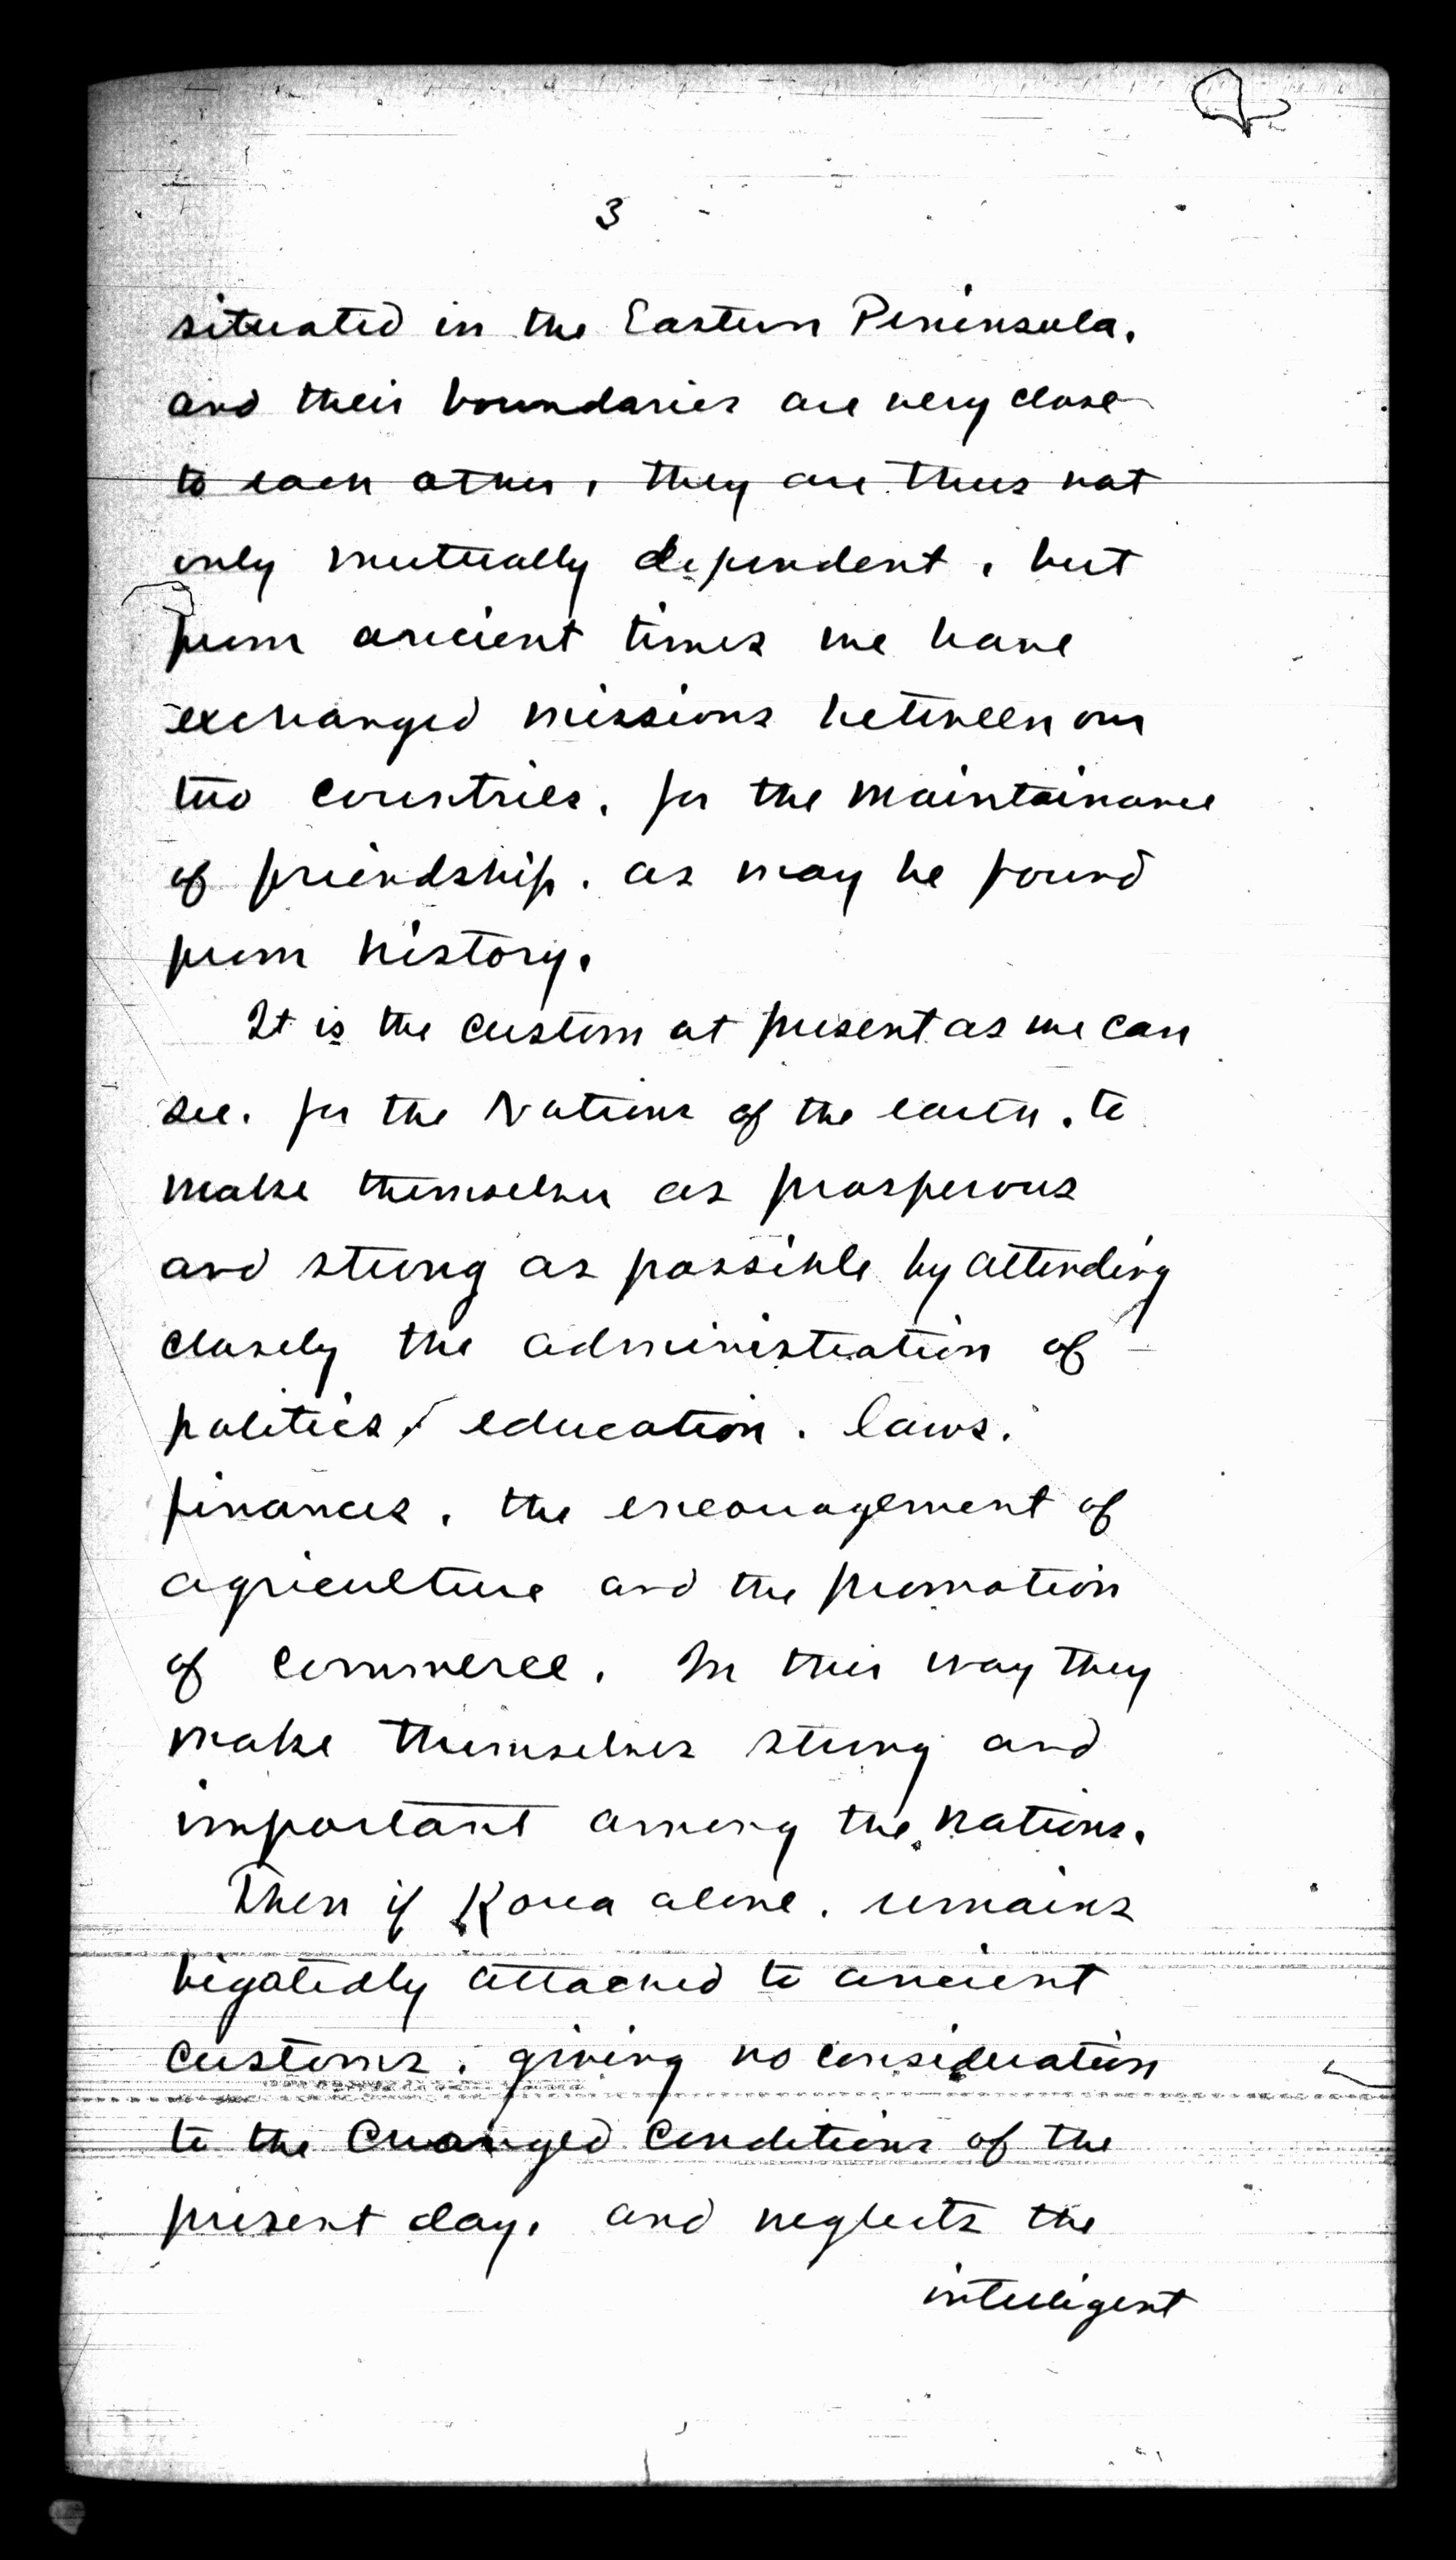 3
situated in the Eastern Peninsula.
and their boundaries are very close
to each other, they are thus not
only mutually dependent, but
from ancient times we have
exchanged missions between our
two countries, for the maintainance
of friendship. as may be found
from history.
It is the custom at present as we can
see. for the Nations of the earth, to
make themselves as prosperous
and strong as possible by attending
closely the administration of
politics, education. laws.
finances, the encouragement of
agriculture and the promotion
of commerce. In this way they
make themselves strong and
important among the nations.
Then if Korea alone, remains
bigotedly attached to ancient
customs, giving no consideration
to the Changed Conditions of the
present day, and neglects the
intelligent